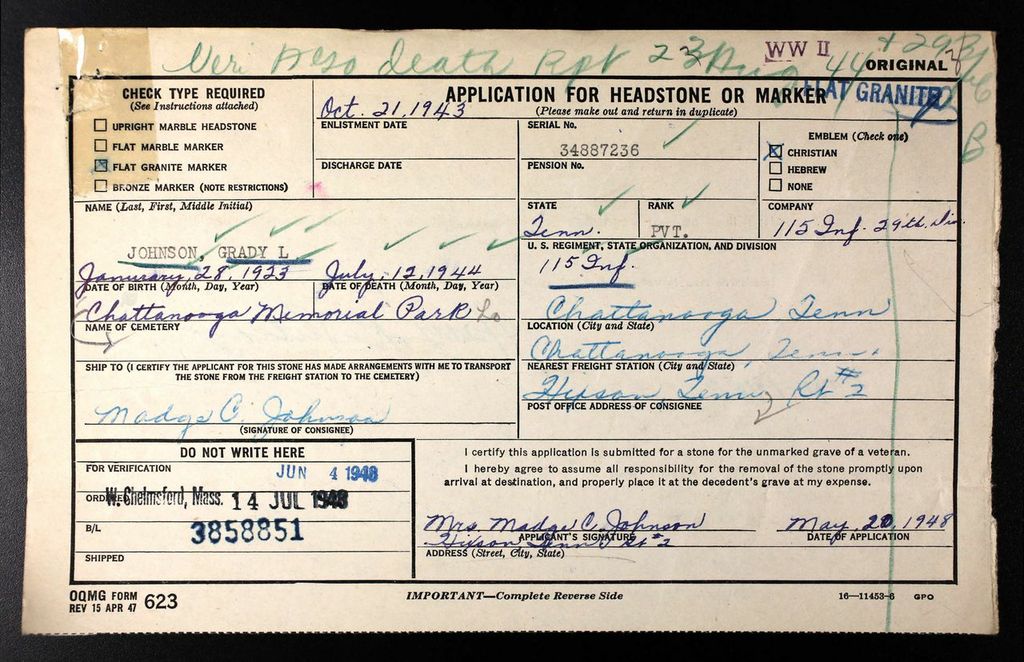 Veri Aeso death Rpt 23 Aug 44
WW II
ORIGINAL
FLAT GRANITE
B
CHECK TYPE REQUIRED
(See Instructions attached)
UPRIGHT MARBLE HEADSTONE
FLAT MARBLE MARKER
FLAT GRANITE MARKER
BRONZE MARKER (NOTE RESTRICTIONS)
APPLICATION FOR HEADSTONE OR MARKER
(Please make out and return in duplicate)
Oct. 21, 1943
ENLISTMENT DATE
DISCHARGE DATE
SERIAL No.
34887236
PENSION No.
EMBLEM (Check one)
CHRISTIAN
HEBREW
NONE
NAME (Last, First, Middle Initial)
JOHNSON, GRADY L
STATE
Tenn.
RANK
PVT.
COMPANY
115 Inf. 29th. Div.
U. S. REGIMENT, STATE ORGANIZATION, AND DIVISION
115 Inf.
January. 28, 1923
DATE OF BIRTH (Month, Day, Year)
July. 12, 1944
DATE OF DEATH (Month, Day, Year)
Chattanooga Memorial Park
NAME OF CEMETERY
Chattanooga Tenn
LOCATION (City and State)
Chattanooga, Tenn.
NEAREST FREIGHT STATION (City and State)
Hixson, Tenn, Rt #2
POST OFFICE ADDRESS OF CONSIGNEE
SHIP TO (I CERTIFY THE APPLICANT FOR THIS STONE HAS MADE ARRANGEMENTS WITH ME TO TRANSPORT
THE STONE FROM THE FREIGHT STATION TO THE CEMETERY)
Madge C. Johnson
(SIGNATURE OF CONSIGNEE)
DO NOT WRITE HERE
FOR VERIFICATION
JUN 4 1948
ORDERED
W. Chelmsford, Mass. 14 JUL 1948
B/L
3858851
SHIPPED
I certify this application is submitted for a stone for the unmarked grave of a veteran.
I hereby agree to assume all responsibility for the removal of the stone promptly upon
arrival at destination, and properly place it at the decedent's grave at my expense.
Mrs. Madge C. Johnson
APPLICANT'S SIGNATURE
May, 20, 1948
DATE OF APPLICATION
Hixson Tenn Rt #2
ADDRESS (Street, City, State)
OQMG FORM
REV 15 APR 47
623
IMPORTANT—Complete Reverse Side
16—11453-6 GPO